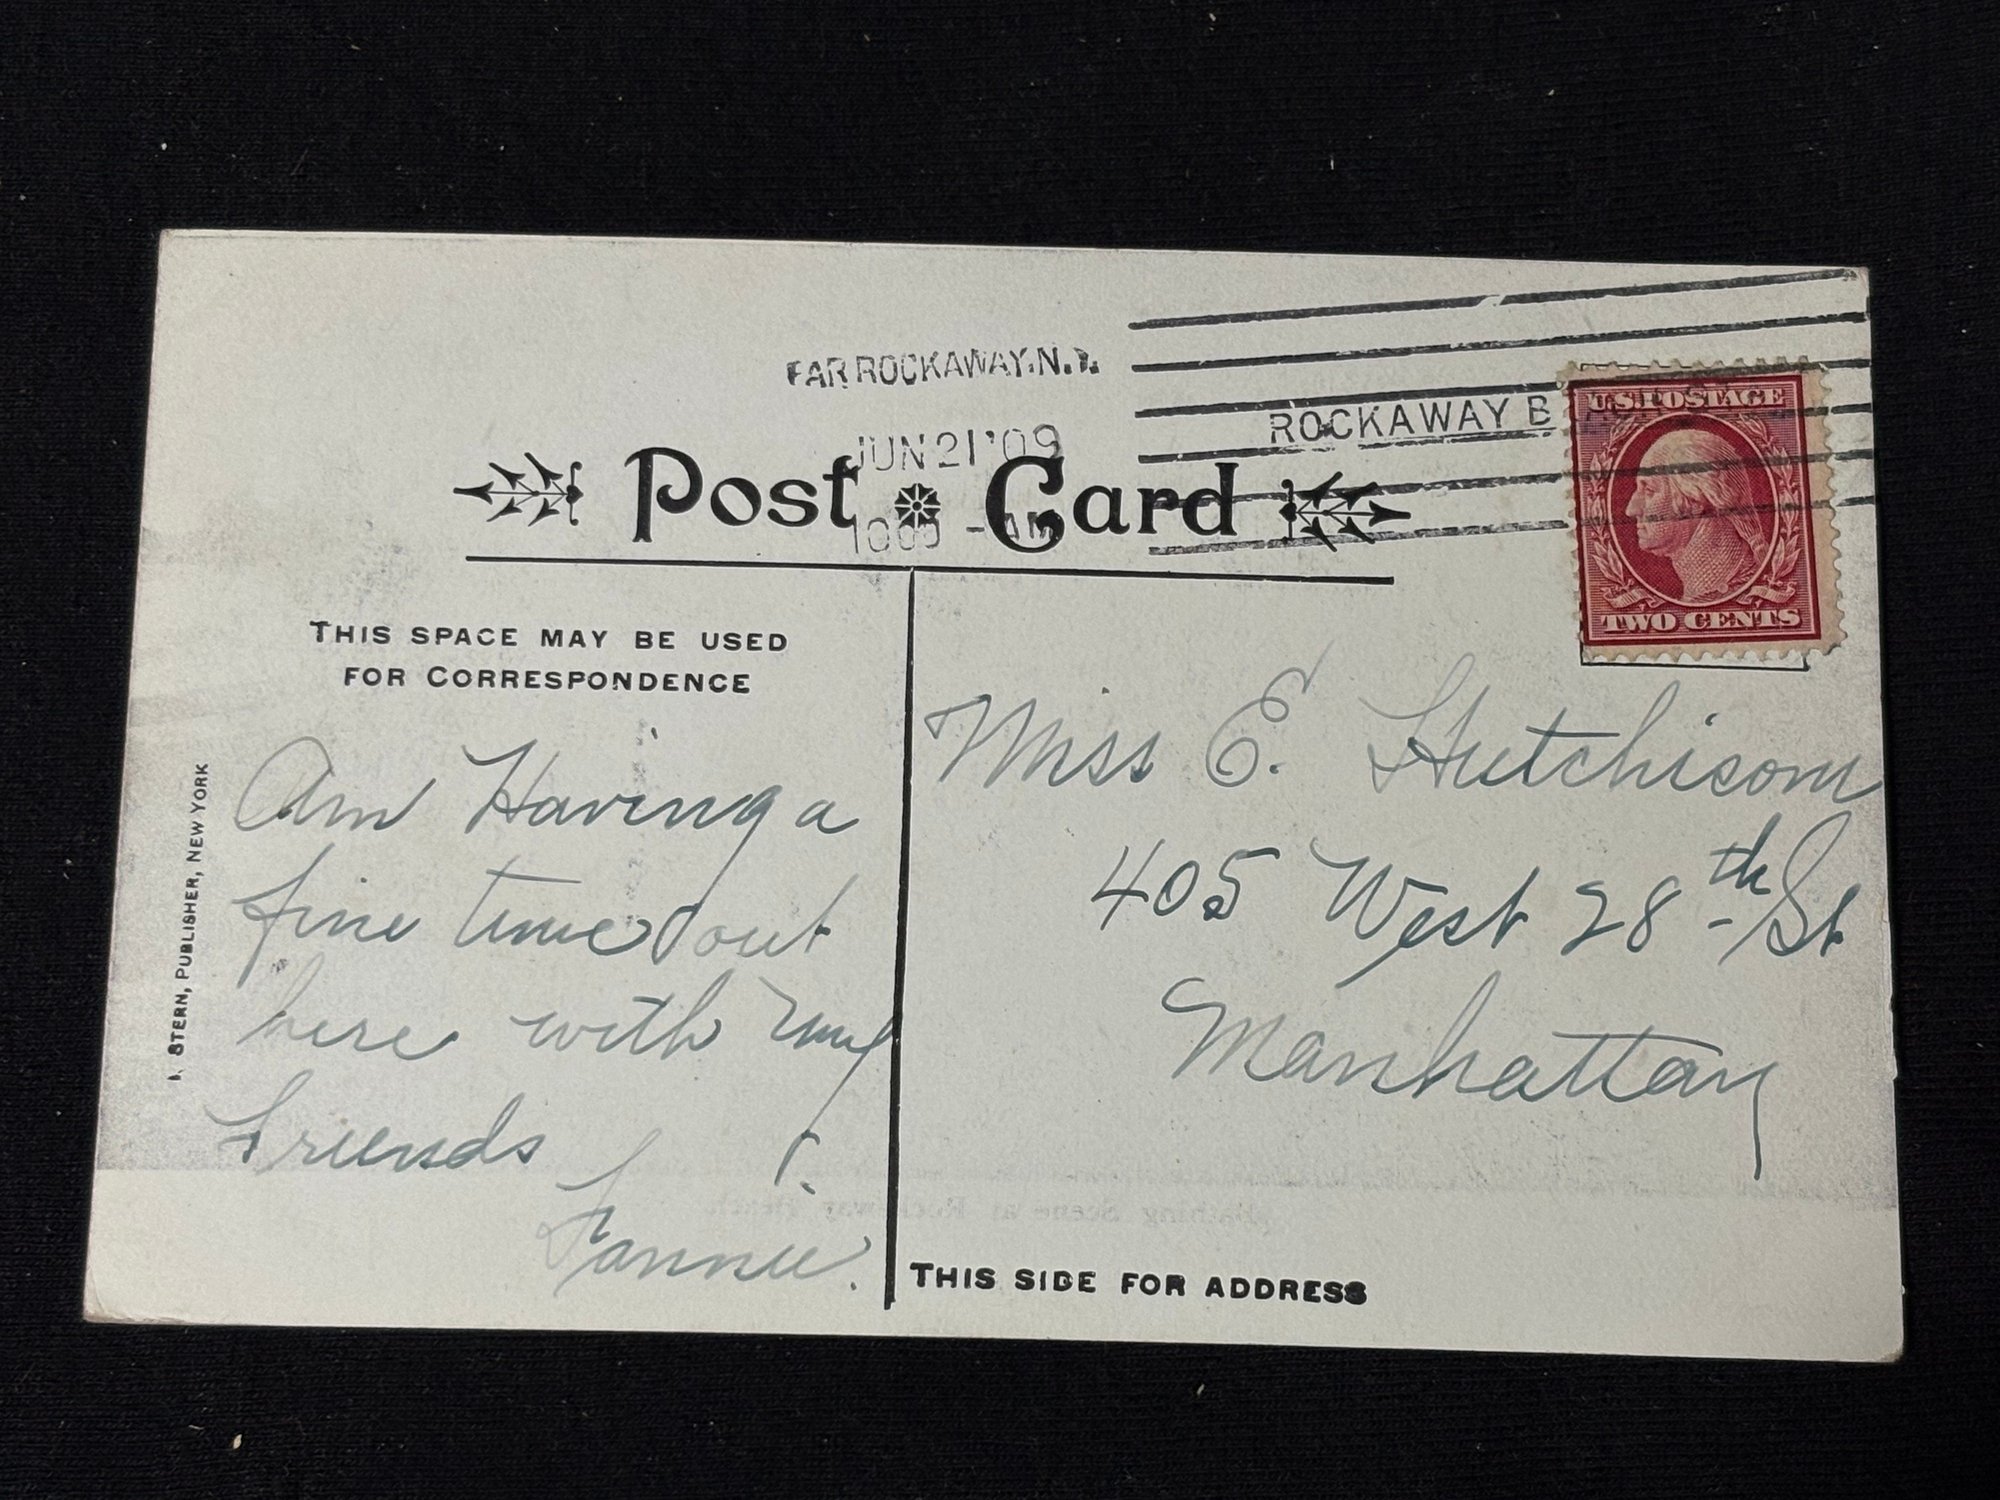 FAR ROCKAWAY, N.Y.
JUN 21 '09
ROCKAWAY B
U.S. POSTAGE
TWO CENTS
Post Card
THIS SPACE MAY BE USED
FOR CORRESPONDENCE
I. STERN, PUBLISHER, NEW YORK
Am Having a
fine time out
here with my
friends
Fannie.
Miss E. Hutchison
405 West 28th St
Manhattan
Bathing Scene at Rockaway Beach
THIS SIDE FOR ADDRESS